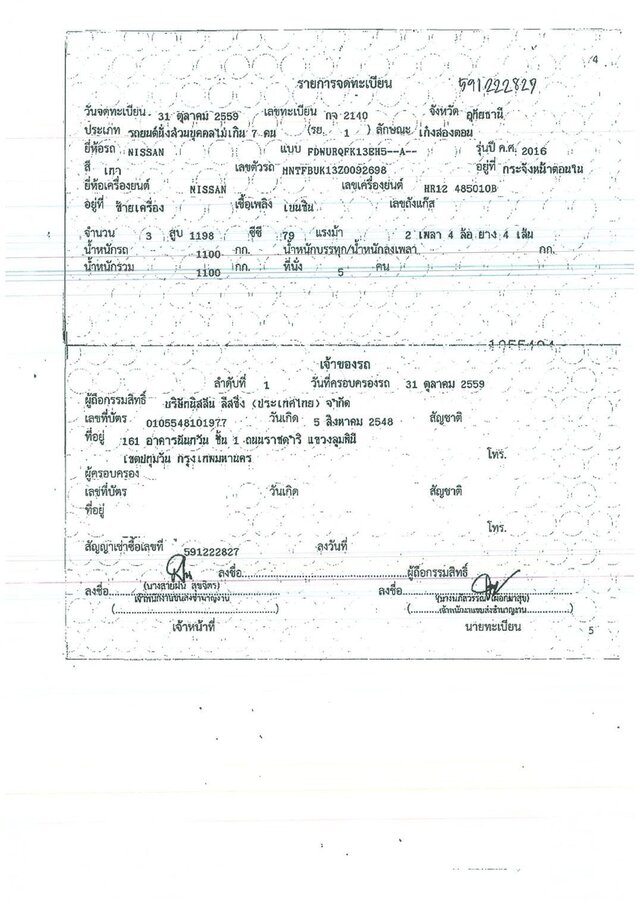 4
รายการจดทะเบียน 591222827
วันจดทะเบียน 31 ตุลาคม 2559 เลขทะเบียน กจ 2140 จังหวัด อุทัยธานี
ประเภท รถยนต์นั่งส่วนบุคคลไม่เกิน 7 คน (รย. 1 ) ลักษณะ เก๋งสองตอน
ยี่ห้อรถ NISSAN แบบ FDWURQFK13EH5--A-- รุ่นปี ค.ศ. 2016
สี เทา เลขตัวรถ MNTFBUK13Z0092698 อยู่ที่ กระจังหน้าตอนใน
ยี่ห้อเครื่องยนต์ NISSAN เลขเครื่องยนต์ HR12 485010B
อยู่ที่ ซ้ายเครื่อง เชื้อเพลิง เบนซิน เลขถังแก๊ส
จำนวน 3 สูบ 1198 ซีซี 79 แรงม้า 2 เพลา 4 ล้อ ยาง 4 เส้น
น้ำหนักรถ 1100 กก. น้ำหนักบรรทุก/น้ำหนักลงเพลา กก.
น้ำหนักรวม 1100 กก. ที่นั่ง 5 คน
เจ้าของรถ
ลำดับที่ 1 วันที่ครอบครองรถ 31 ตุลาคม 2559
ผู้ถือกรรมสิทธิ์ บริษัทนิสสัน ลีสซิ่ง (ประเทศไทย) จำกัด
เลขที่บัตร 0105548101977 วันเกิด 5 สิงหาคม 2548 สัญชาติ
ที่อยู่ 161 อาคารนันทวัน ชั้น 1 ถนนราชดำริ แขวงลุมพินี
เขตปทุมวัน กรุงเทพมหานคร โทร.
ผู้ครอบครอง
เลขที่บัตร วันเกิด สัญชาติ
ที่อยู่
โทร.
สัญญาเช่าซื้อเลขที่ 591222827 ลงวันที่
ลงชื่อ ผู้ถือกรรมสิทธิ์
ลงชื่อ (นางสายฝน สุขจิตร) ลงชื่อ
เจ้าพนักงานขนส่งชำนาญงาน เจ้าพนักงานขนส่งชำนาญงาน
เจ้าหน้าที่ นายทะเบียน
5